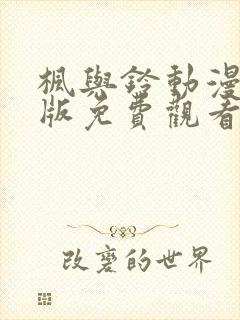 楓與鈴動漫
版免費觀看
改變的世界